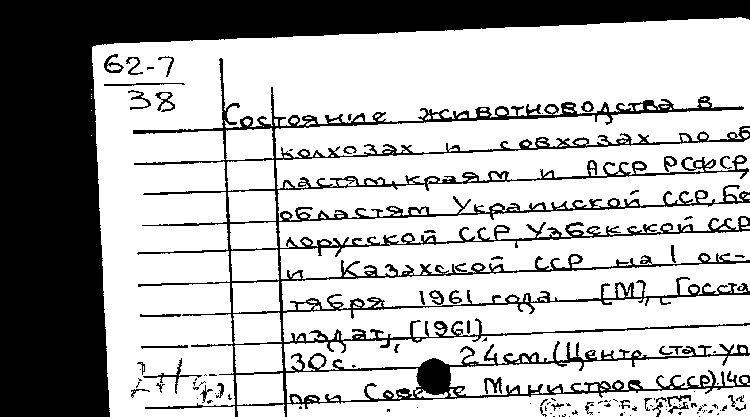 62-7
38
Состояние животноводства в
колхозах и совхозах по об
ластям, краям и АССР РСФСР,
областям Украинской ССР, Бе
лорусской ССР, Узбекской ССР
и Казахской ССР на 1 ок-
тября 1961 года. [М], Госста
издат, [1961].
30с. 24см. (Центр. стат. уп
при Сове те Министров СССР).